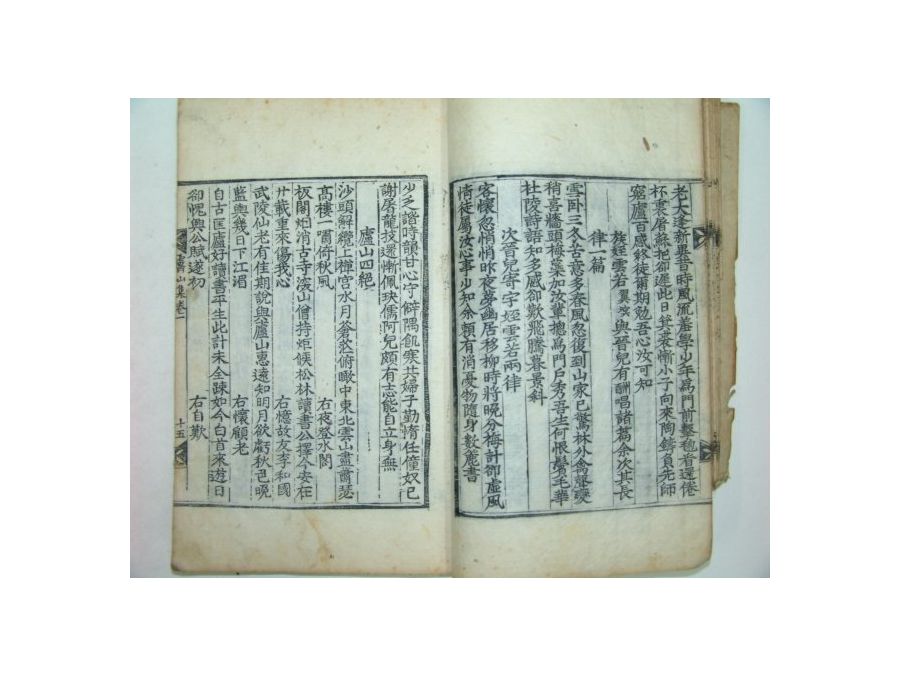 老大逢新異昔時風流羞學少年爲門前擊毬看還倦
杯裏屠蘇把卻遲此日箕裘慚小子向來陶鑄負先師
窮廬百感終徒爾期勉吾心汝可知
族姪雲若翼與晉兒有酬唱諸篇余次其長
律篇
雪臥三冬苦意多春風忽復到山家已驚林外禽聲變
稍喜墻頭梅蘂加汝輩摠爲門戶秀吾生何恨鬢毛華
杜陵詩語知多感卻歎飛騰暮景斜
次晉兒寄字姪雲若兩律
客懷忽悄悄昨夜夢幽居移柳時將晩分梅計卻虛風
情徒屬汝心事少知余頼有消憂物隨身數簏書
少乏諧時韻甘心守僻隅飢寒共婦子勤惰任僮奴已
謝屠龍技還慚佩玦儒阿兒頗有志能自立身無
廬山四絕
沙頭解纜上禪宮水月蒼茫俯瞰中東北雲山盡肅瑟
高樓一嘯倚秋風 右夜登水閣
板閣烟消古寺深山僧持炬候松林讀書公擇今安在
廿載重來傷我心 右憶故友李和國
武陵仙老有佳期說與廬山惠遠知明月欲虧秋已晩
藍輿幾日下江湄 右懷顧老
自古匡廬好讀書平生此計未全踈如今白首來遊日
卻愧興公賦遂初 右自歎
山集卷一 十五